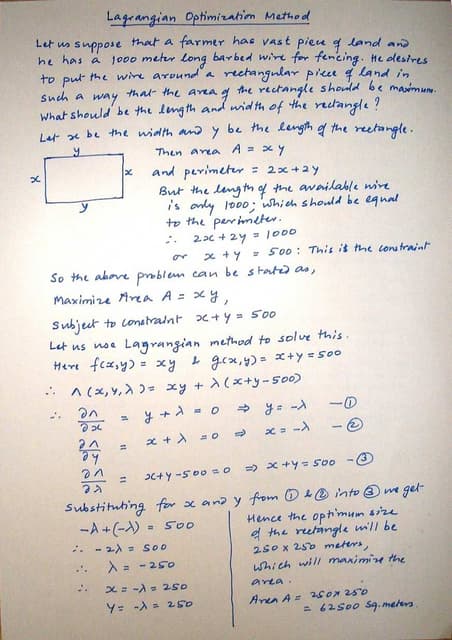 Lagrangian Optimization Method
Let us suppose that a farmer has vast piece of land and
he has a 1000 meter long barbed wire for fencing. He desires
to put the wire around a rectangular piece of land in
such a way that the area of the rectangle should be maximum.
What should be the length and width of the rectangle?
Let x be the width and y be the length of the rectangle.
y
x
x
y
Then area A = xy
and perimeter = 2x+2y
But the length of the available wire
is only 1000; which should be equal
to the perimeter.
∴ 2x+2y = 1000
or x+y = 500: This is the constraint
So the above problem can be stated as,
Maximize Area A = xy,
Subject to constraint x+y = 500
Let us use Lagrangian method to solve this.
Here f(x,y) = xy & g(x,y) = x+y = 500
∴ Λ(x,y,λ) = xy + λ(x+y-500)
∴ ∂Λ/∂x = y+λ = 0 ⇒ y = -λ —①
∂Λ/∂y = x+λ = 0 ⇒ x = -λ —②
∂Λ/∂λ = x+y-500 = 0 ⇒ x+y = 500 —③
Substituting for x and y from ① & ② into ③ we get
-λ+(-λ) = 500
∴ -2λ = 500
∴ λ = -250
∴ x = -λ = 250
y = -λ = 250
Hence the optimum size
of the rectangle will be
250 x 250 meters,
which will maximize the
area.
Area A = 250x250
= 62500 sq.meters